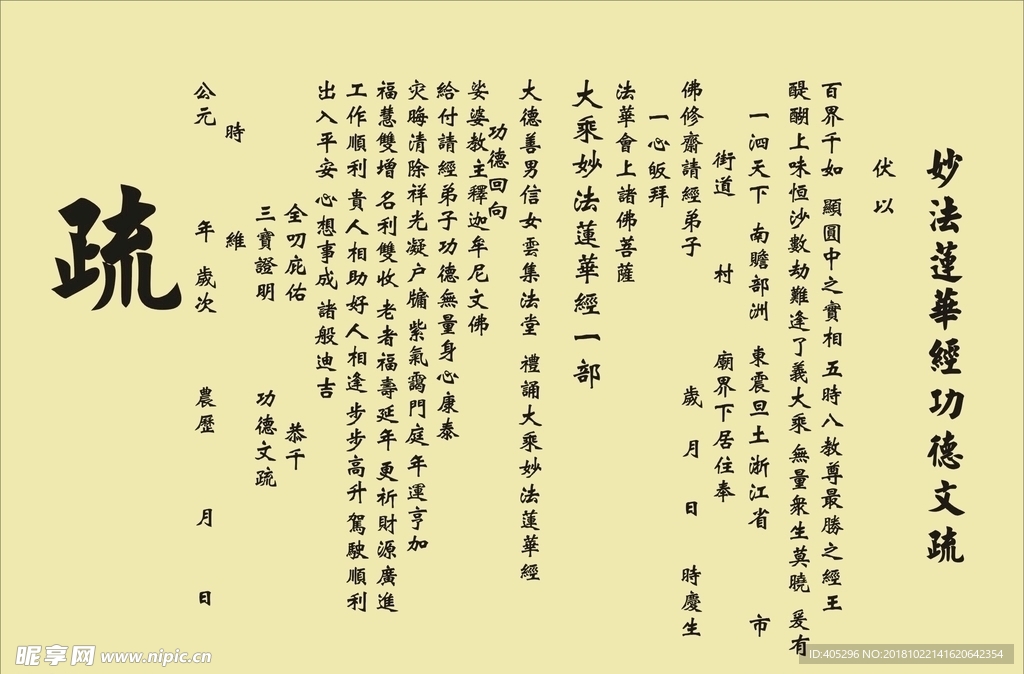 妙法蓮華經功德文疏
伏以
百界千如 顯圓中之實相 五時八教尊最勝之經王
醍醐上味恒沙數劫難逢了義大乘 無量衆生莫曉 爰有
一泗天下 南贍部洲 東震旦土 浙江省 市
街道 村 廟界下居住奉
佛修齋請經弟子 歲 月 日 時慶生
一心皈拜
法華會上諸佛菩薩
大乘妙法蓮華經一部
大德善男信女雲集法堂 禮誦大乘妙法蓮華經
功德回向
娑婆教主釋迦牟尼文佛
給付請經弟子功德無量身心康泰
灾晦清除祥光凝户牖 紫氣靄門庭 年運亨加
福慧雙增 名利雙收 老者福壽延年 更祈財源廣進
工作順利 貴人相助好人相逢 步步高升 駕駛順利
出入平安 心想事成 諸般迪吉
全叨庇佑 恭干
三寶證明 功德文疏
時 維
公元 年 歲次 農歷 月 日
疏
昵享网 www.nipic.cn
ID:405296 NO:20181022141620642354